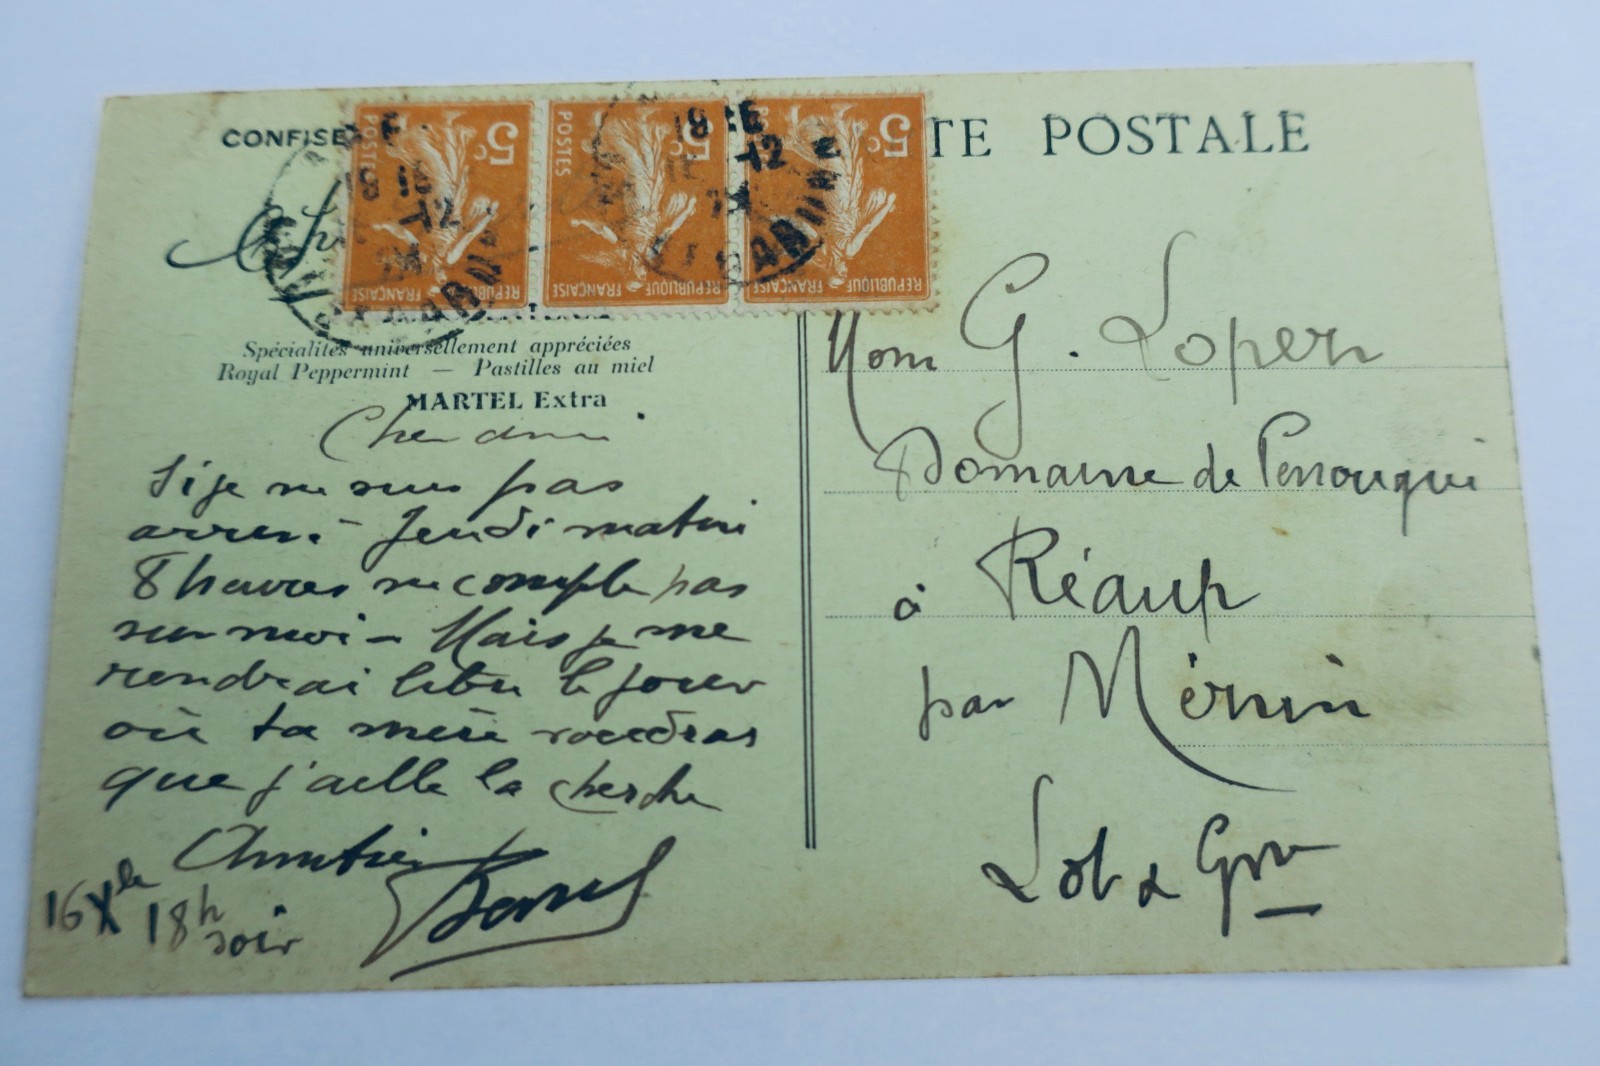 CONFISE
TE POSTALE
5c 5c 5c
POSTES POSTES
REPUBLIQUE FRANÇAISE REPUBLIQUE FRANÇAISE REPUBLIQUE FRANÇAISE
18
12
18
12
Spécialités universellement appréciées
Royal Peppermint — Pastilles au miel
MARTEL Extra
Cher ami
Si je ne suis pas
arrivé Jeudi matin
8 heures ne compte pas
sur moi — Mais je me
rendrai libre le jour
où ta mère voudras
que j'aille la cherche
16 Xbre 18h
soir
G. Loperz
Domaine de
à Réaup
par Mézin
Lot & Gne